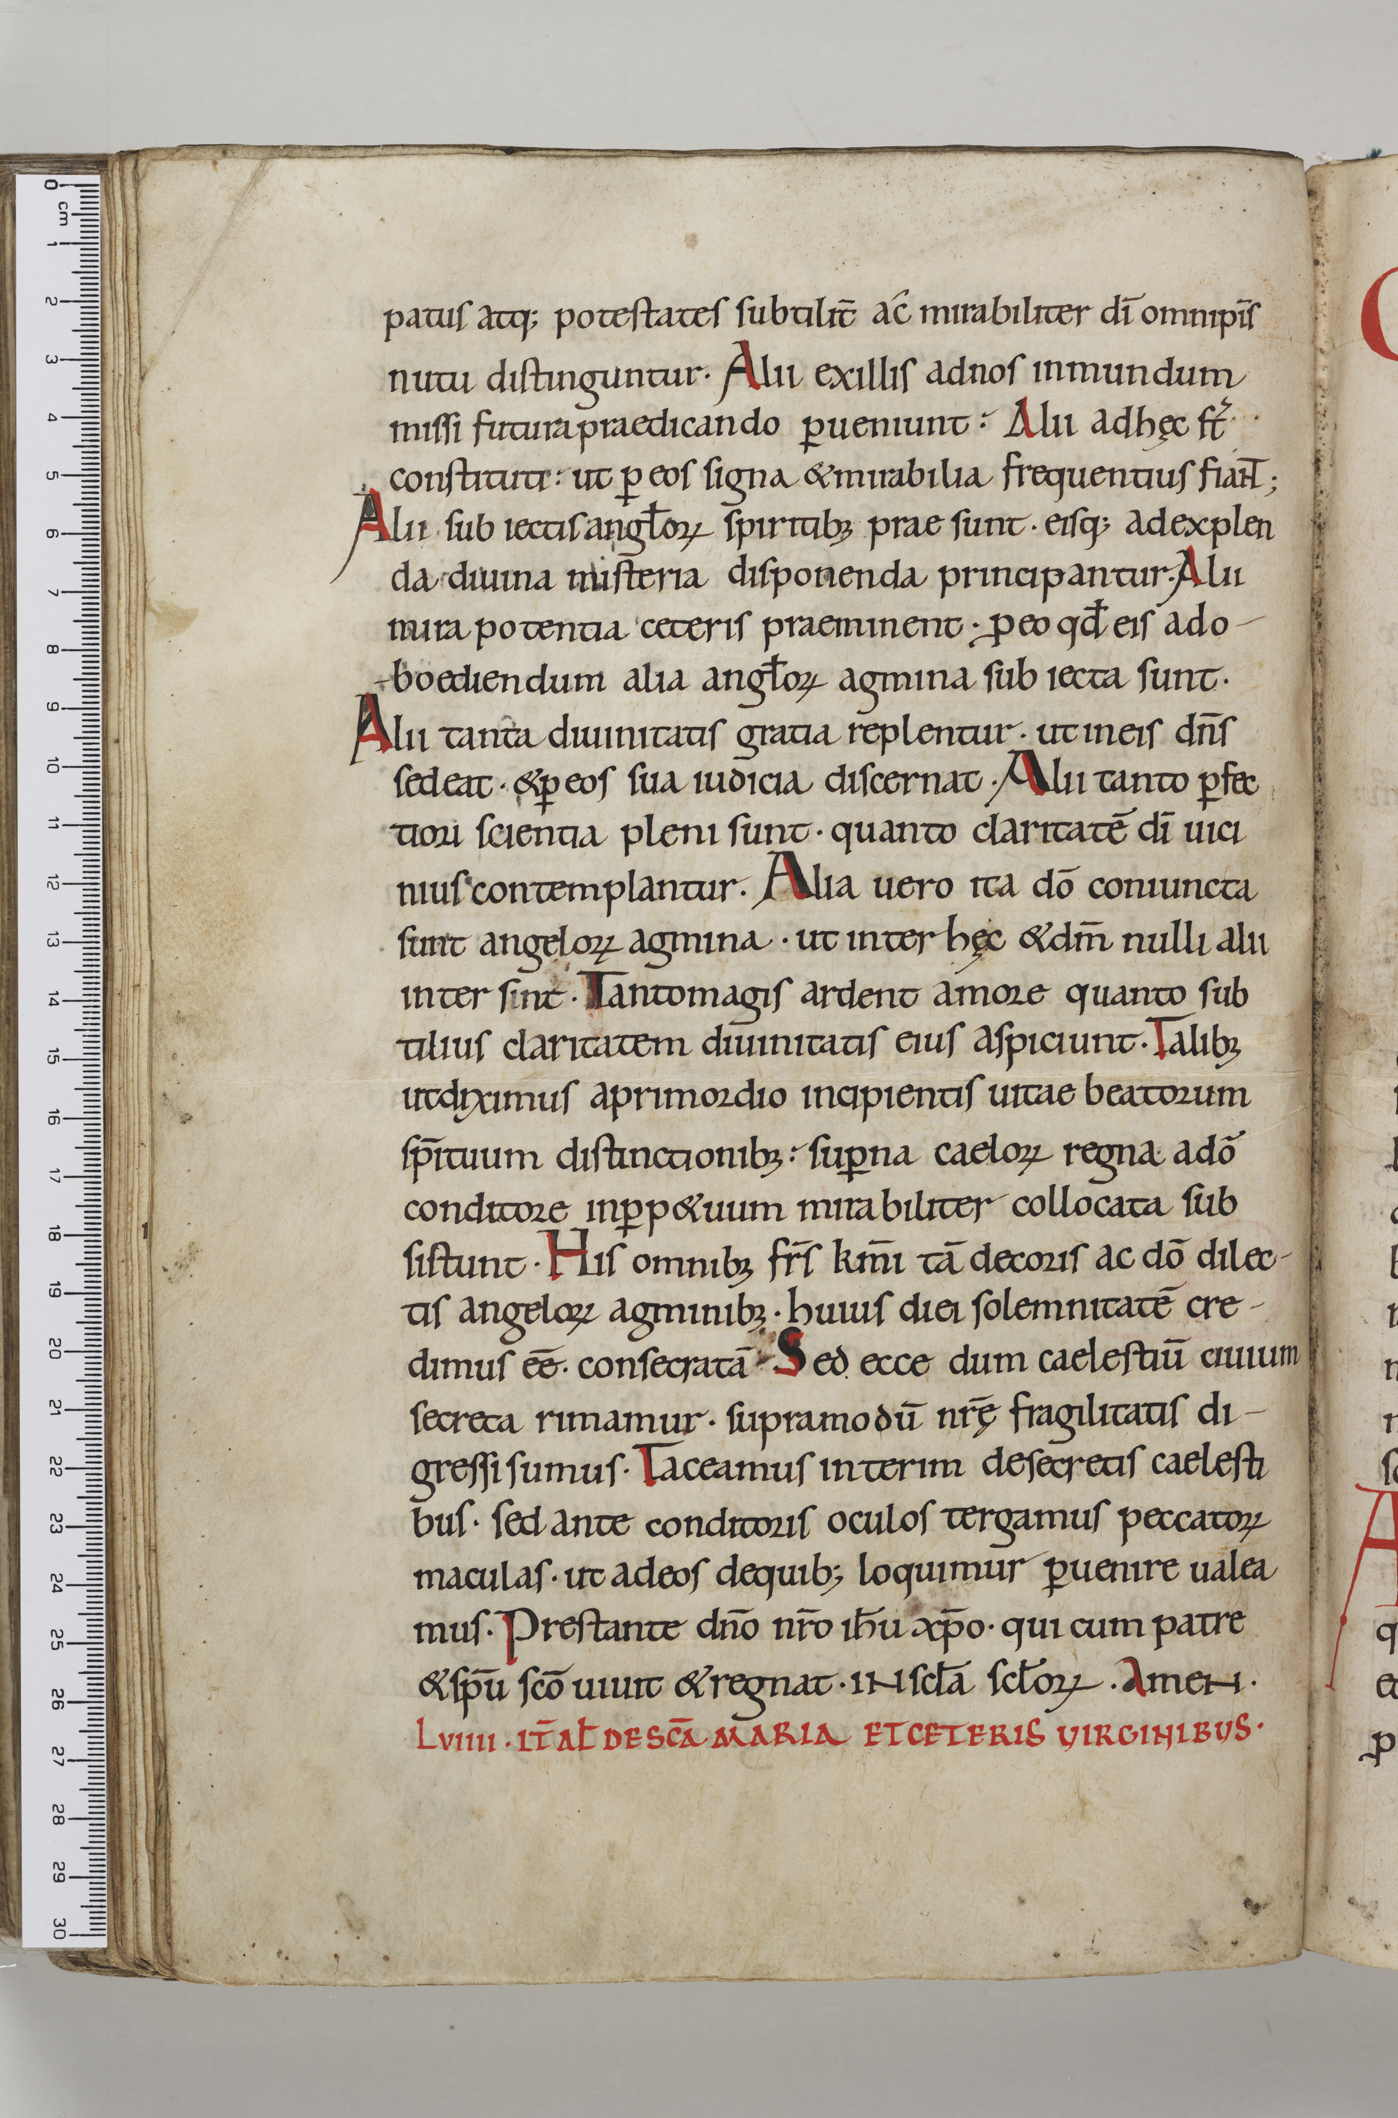 patus atq; potestates subtilit̄ ac̄ mirabiliter dī omnip̄is
nutu distinguntur· Alii exillis adnos inmundum
missi futura praedicando ꝑueniunt: Alii adhęc st̄
constituti: ut ꝑ eos signa &mirabilia frequentius fiant;
Alii sub iectis angl̄oꝝ spiritibꝫ prae sunt· eisq; adexplen
da diuina mist̄eria disponenda principantur· Alii
mira potentia ceteris praeminent· ꝑeo qd̄ eis ado-
-boediendum alia angl̄oꝝ agmina sub iecta sunt·
Alii tanta diuinitatis gratia replentur· ut ineis dn̄s
sedeat· &ꝑeos sua iudicia discernat· Alii tanto ꝑfec
tiori scientia pleni sunt· quanto claritatē dī uici
nius contemplantur. Alia uero ita dō coniuncta
sunt angeloꝝ agmina· ut inter hęc &dm̄ nulli alii
inter sint· Tantomagis ardent amore quanto sub
tilius claritatem diuinitatis eius aspiciunt· Talibꝫ
utdiximus aprimordio incipientis uitae beatorum
sp̄ituum distinctionibꝫ: suꝑna caeloꝝ regna adō
conditore inꝑp&uum mirabiliter collocata sub
sistunt· His omnibꝫ fr̄s km̄i tā decoris ac dō dilec-
tis angeloꝝ agminibꝫ· huius diei solemnitatē cre-
dimus eē· consecratā· Sed ecce dum caelestiū ciuium
secreta rimamur· supramodū nr̄ę fragilitatis di-
gressi sumus· Taceamus interim desecretis caelesti
bus· sed ante conditoris oculos tergamus peccatoꝝ
maculas· ut adeos dequib; loquimur ꝑuenire ualea
mus· Prestante dn̄o nr̄o ih̄u xp̄o· qui cum patre
&sp̄u scō uiuit &regnat· IN scl̄a scl̄oꝝ· AmeN·
LVIIII· IT̄ AL̄ DE SC̄A MARIA ET CETERIS VIRGINIBVS·